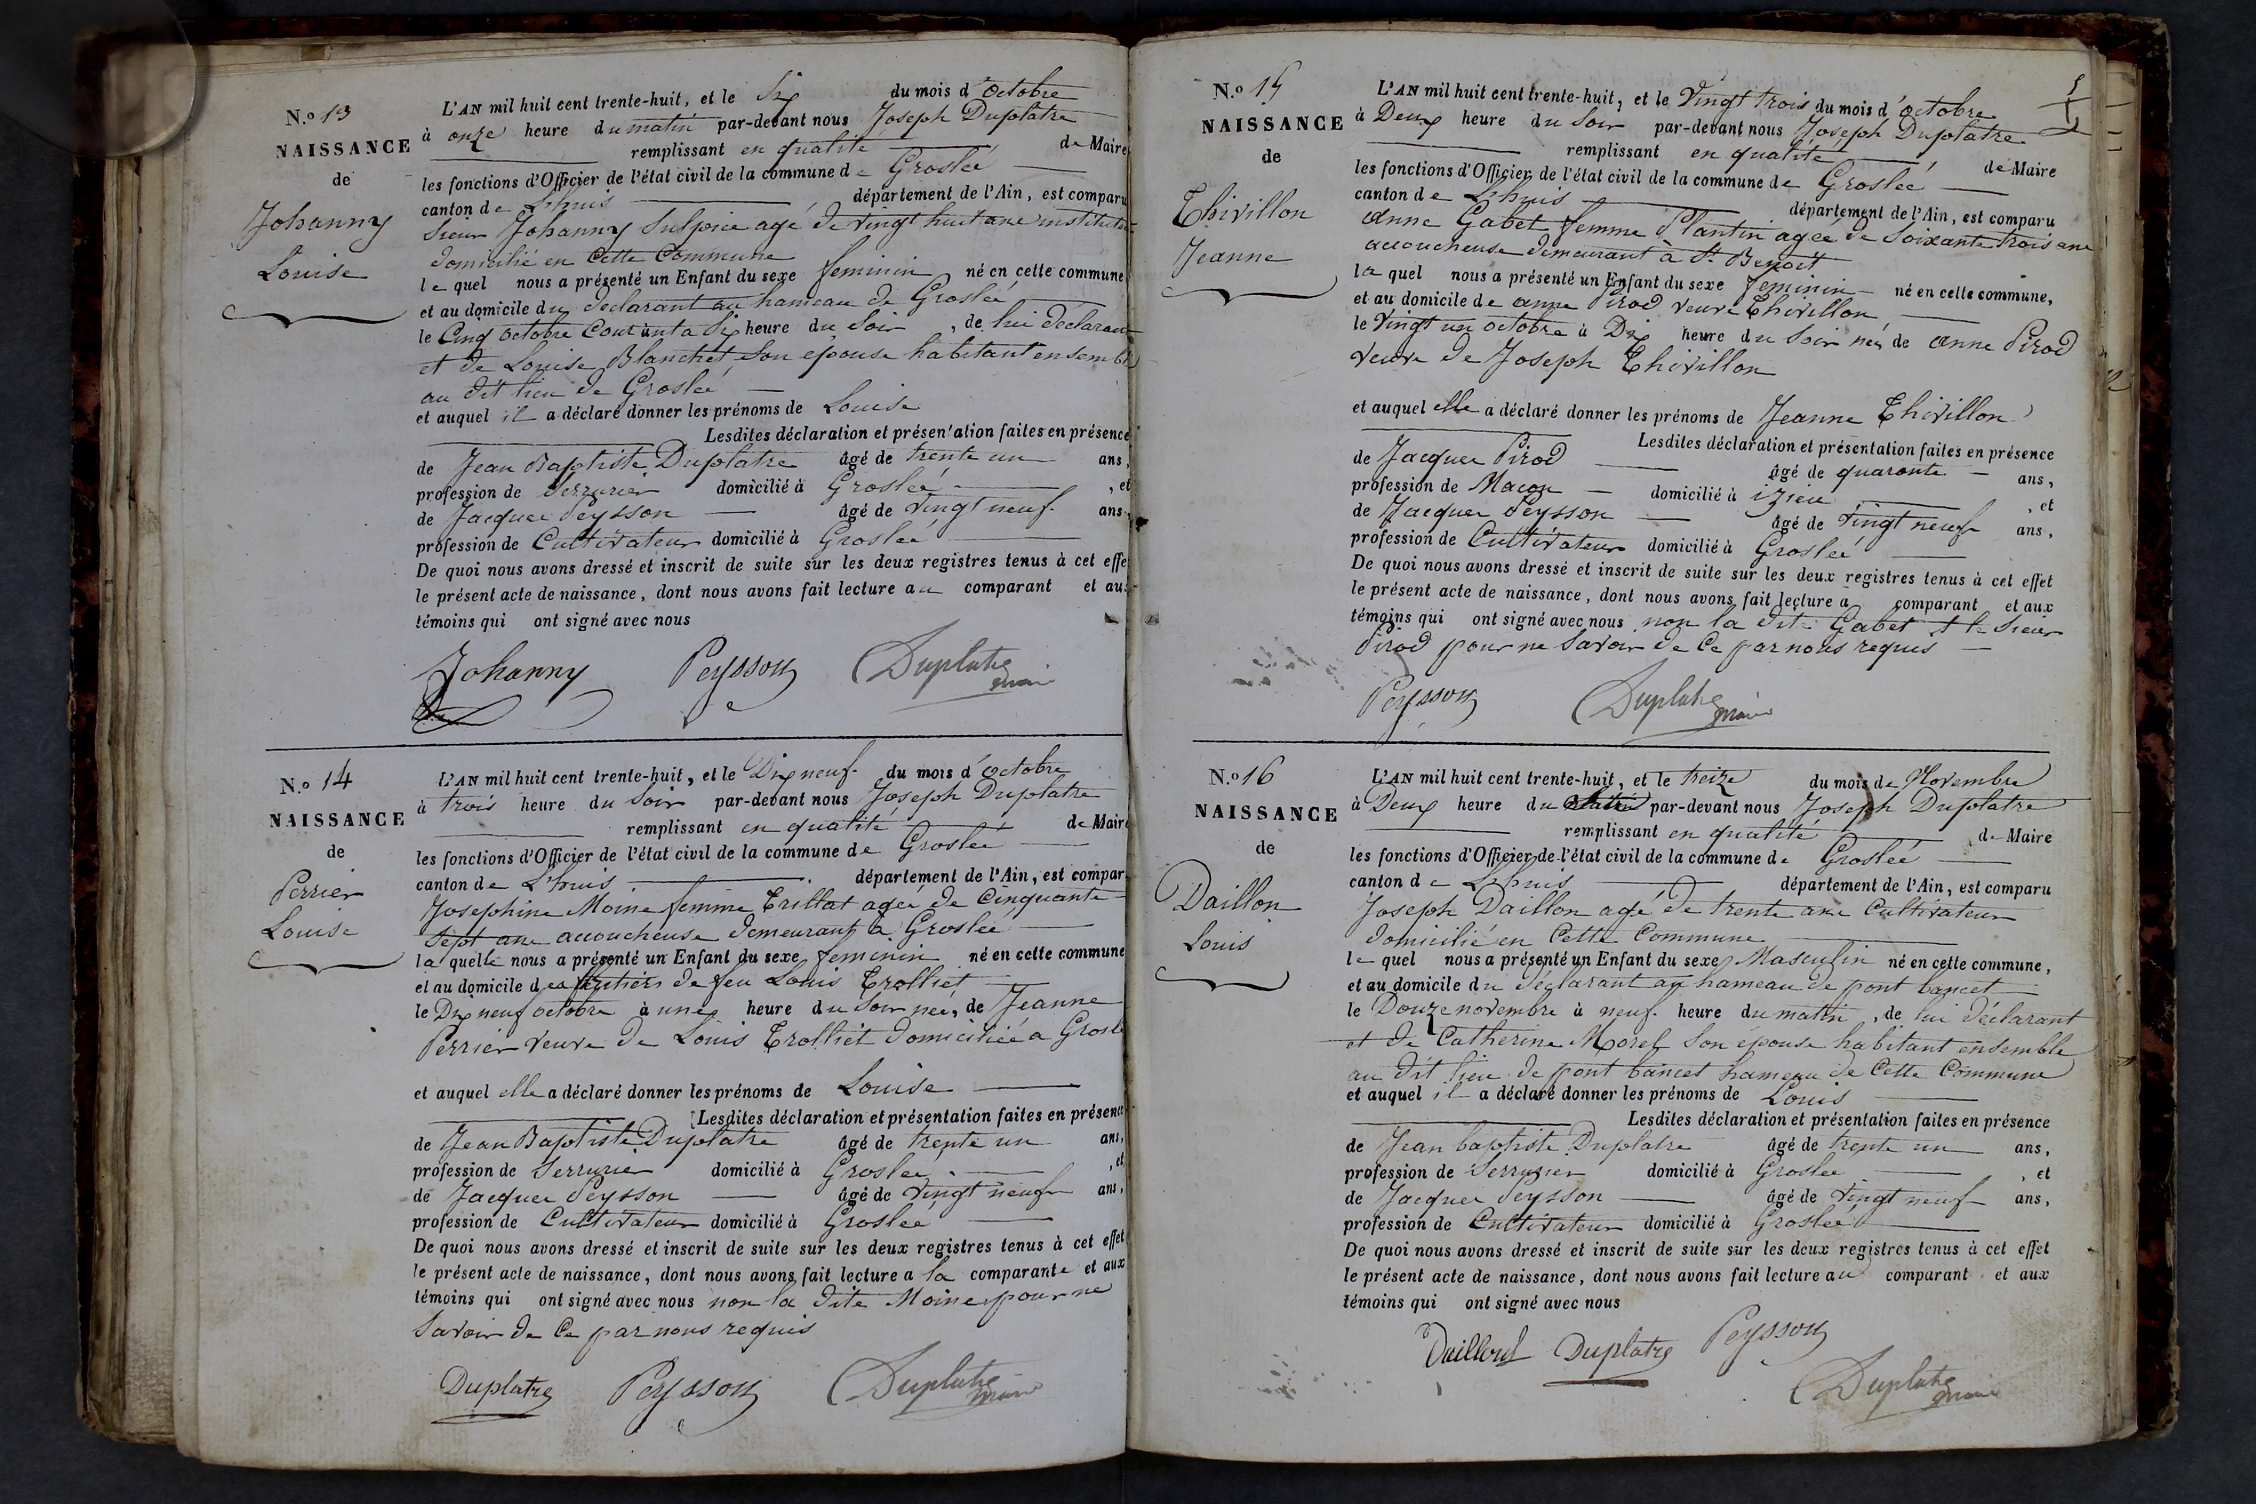 N.o 13
NAISSANCE
de
Johanny
Louise
L'AN mil huit cent trente-huit, et le Six du mois d'octobre
à onze heure du matin par-devant nous Joseph Duplatre
remplissant en qualité de Maire
les fonctions d'Officier de l'état civil de la commune de Groslée
canton de Lhuis département de l'Ain, est comparu
Sieur Johanny Sulpice agé de vingt huit ans instituteur
domicilié en cette Commune
le quel nous a présenté un Enfant du sexe feminin né en cette commune
et au domicile du déclarant au hameau de Groslée
le Cinq octobre courant a Six heure du Soir, de lui déclarant
et de Louise Blanchet, son épouse habitant ensemble
au dit lieu de Groslée
et auquel il a déclaré donner les prénoms de Louise
Lesdites déclaration et présen'ation faites en présence
de Jean Baptiste Duplatre âgé de trente un ans,
profession de Serrurier domicilié à Groslée, et
de Jacques Peysson âgé de vingt neuf ans,
profession de Cultivateur domicilié à Groslée
De quoi nous avons dressé et inscrit de suite sur les deux registres tenus à cet effe
le présent acte de naissance, dont nous avons fait lecture au comparant et aux
témoins qui ont signé avec nous
Johanny Peysson Duplatre
maire
N.o 14
NAISSANCE
de
Perrier
Louise
L'AN mil huit cent trente-huit, et le Dix neuf du mois d'octobre
à trois heure du Soir par-devant nous Joseph Duplatre
remplissant en qualité de Maire
les fonctions d'Officier de l'état civil de la commune de Groslée
canton de Lhuis département de l'Ain, est compar
Josephine Moine femme Trillat agée de Cinquante
Sept ans accoucheuse demeurant a Groslée
la quelle nous a présenté un Enfant du sexe feminin né en cette commune
et au domicile des héritiers de feu Louis Trolliet
le Dix neuf octobre à une heure du Soir née, de Jeanne
Perrier veuve de Louis Trolliet domiciliée a Groslé
et auquel elle a déclaré donner les prénoms de Louise
Lesdites déclaration et présentation faites en présence
de Jean Baptiste Duplatre âgé de trente un ans,
profession de Serrurier domicilié à Groslée, et
de Jacques Peysson âgé de vingt neuf ans,
profession de Cultivateur domicilié à Groslée
De quoi nous avons dressé et inscrit de suite sur les deux registres tenus à cet effet
le présent acte de naissance, dont nous avons fait lecture a la comparante et aux
témoins qui ont signé avec nous non la dite Moine pour ne
Savoir de Ce par nous requis
Duplatre Peysson Duplatre
maire
N.o 15
NAISSANCE
de
Thivillon
Jeanne
L'AN mil huit cent trente-huit, et le Vingt trois du mois d'octobre
à Deux heure du Soir par-devant nous Joseph Duplatre
remplissant en qualité de Maire
les fonctions d'Officier de l'état civil de la commune de Groslée
canton de Lhuis département de l'Ain, est comparu
anne Gabet femme Plantin agée de Soixante trois ans
accoucheuse demeurant à St. Benoit
la quel nous a présenté un Enfant du sexe feminin né en cette commune,
et au domicile de anne Pirod veuve Thivillon
le Vingt un octobre à Dix heure du Soir née, de anne Pirod
veuve de Joseph Thivillon
et auquel elle a déclaré donner les prénoms de Jeanne Thivillon
Lesdites déclaration et présentation faites en présence
de Jacques Pirod âgé de quarante ans,
profession de Maçon domicilié à izieu, et
de Jacques Peysson âgé de vingt neuf ans,
profession de Cultivateur domicilié à Groslée
De quoi nous avons dressé et inscrit de suite sur les deux registres tenus à cet effet
le présent acte de naissance, dont nous avons fait lecture a comparant et aux
témoins qui ont signé avec nous non la dite Gabet et le Sieur
Pirod pour ne Savoir de Ce par nous requis
Peysson Duplatre
maire
N.o 16
NAISSANCE
de
Daillon
Louis
L'AN mil huit cent trente-huit, et le treize du mois de Novembre
à Deux heure du par-devant nous Joseph Duplatre
remplissant en qualité de Maire
les fonctions d'Officier de l'état civil de la commune de Groslée
canton de Lhuis département de l'Ain, est comparu
Joseph Daillon agé de trente ans Cultivateur
domicilié en Cette Commune
le quel nous a présenté un Enfant du sexe Masculin né en cette commune,
et au domicile du déclarant au hameau de pont bancet
le Douze novembre à neuf heure du matin, de lui déclarant
et de Catherine Morel Son épouse habitant ensemble
au dit lieu de pont bancet hameau de Cette Commune
et auquel il a déclaré donner les prénoms de Louis
Lesdites déclaration et présentation faites en présence
de Jean baptiste Duplatre âgé de trente un ans,
profession de Serrurier domicilié à Groslée, et
de Jacques Peysson âgé de vingt neuf ans,
profession de Cultivateur domicilié à Groslée
De quoi nous avons dressé et inscrit de suite sur les deux registres tenus à cet effet
le présent acte de naissance, dont nous avons fait lecture au comparant et aux
témoins qui ont signé avec nous
Daillon Duplatre Peysson
Duplatre
maire